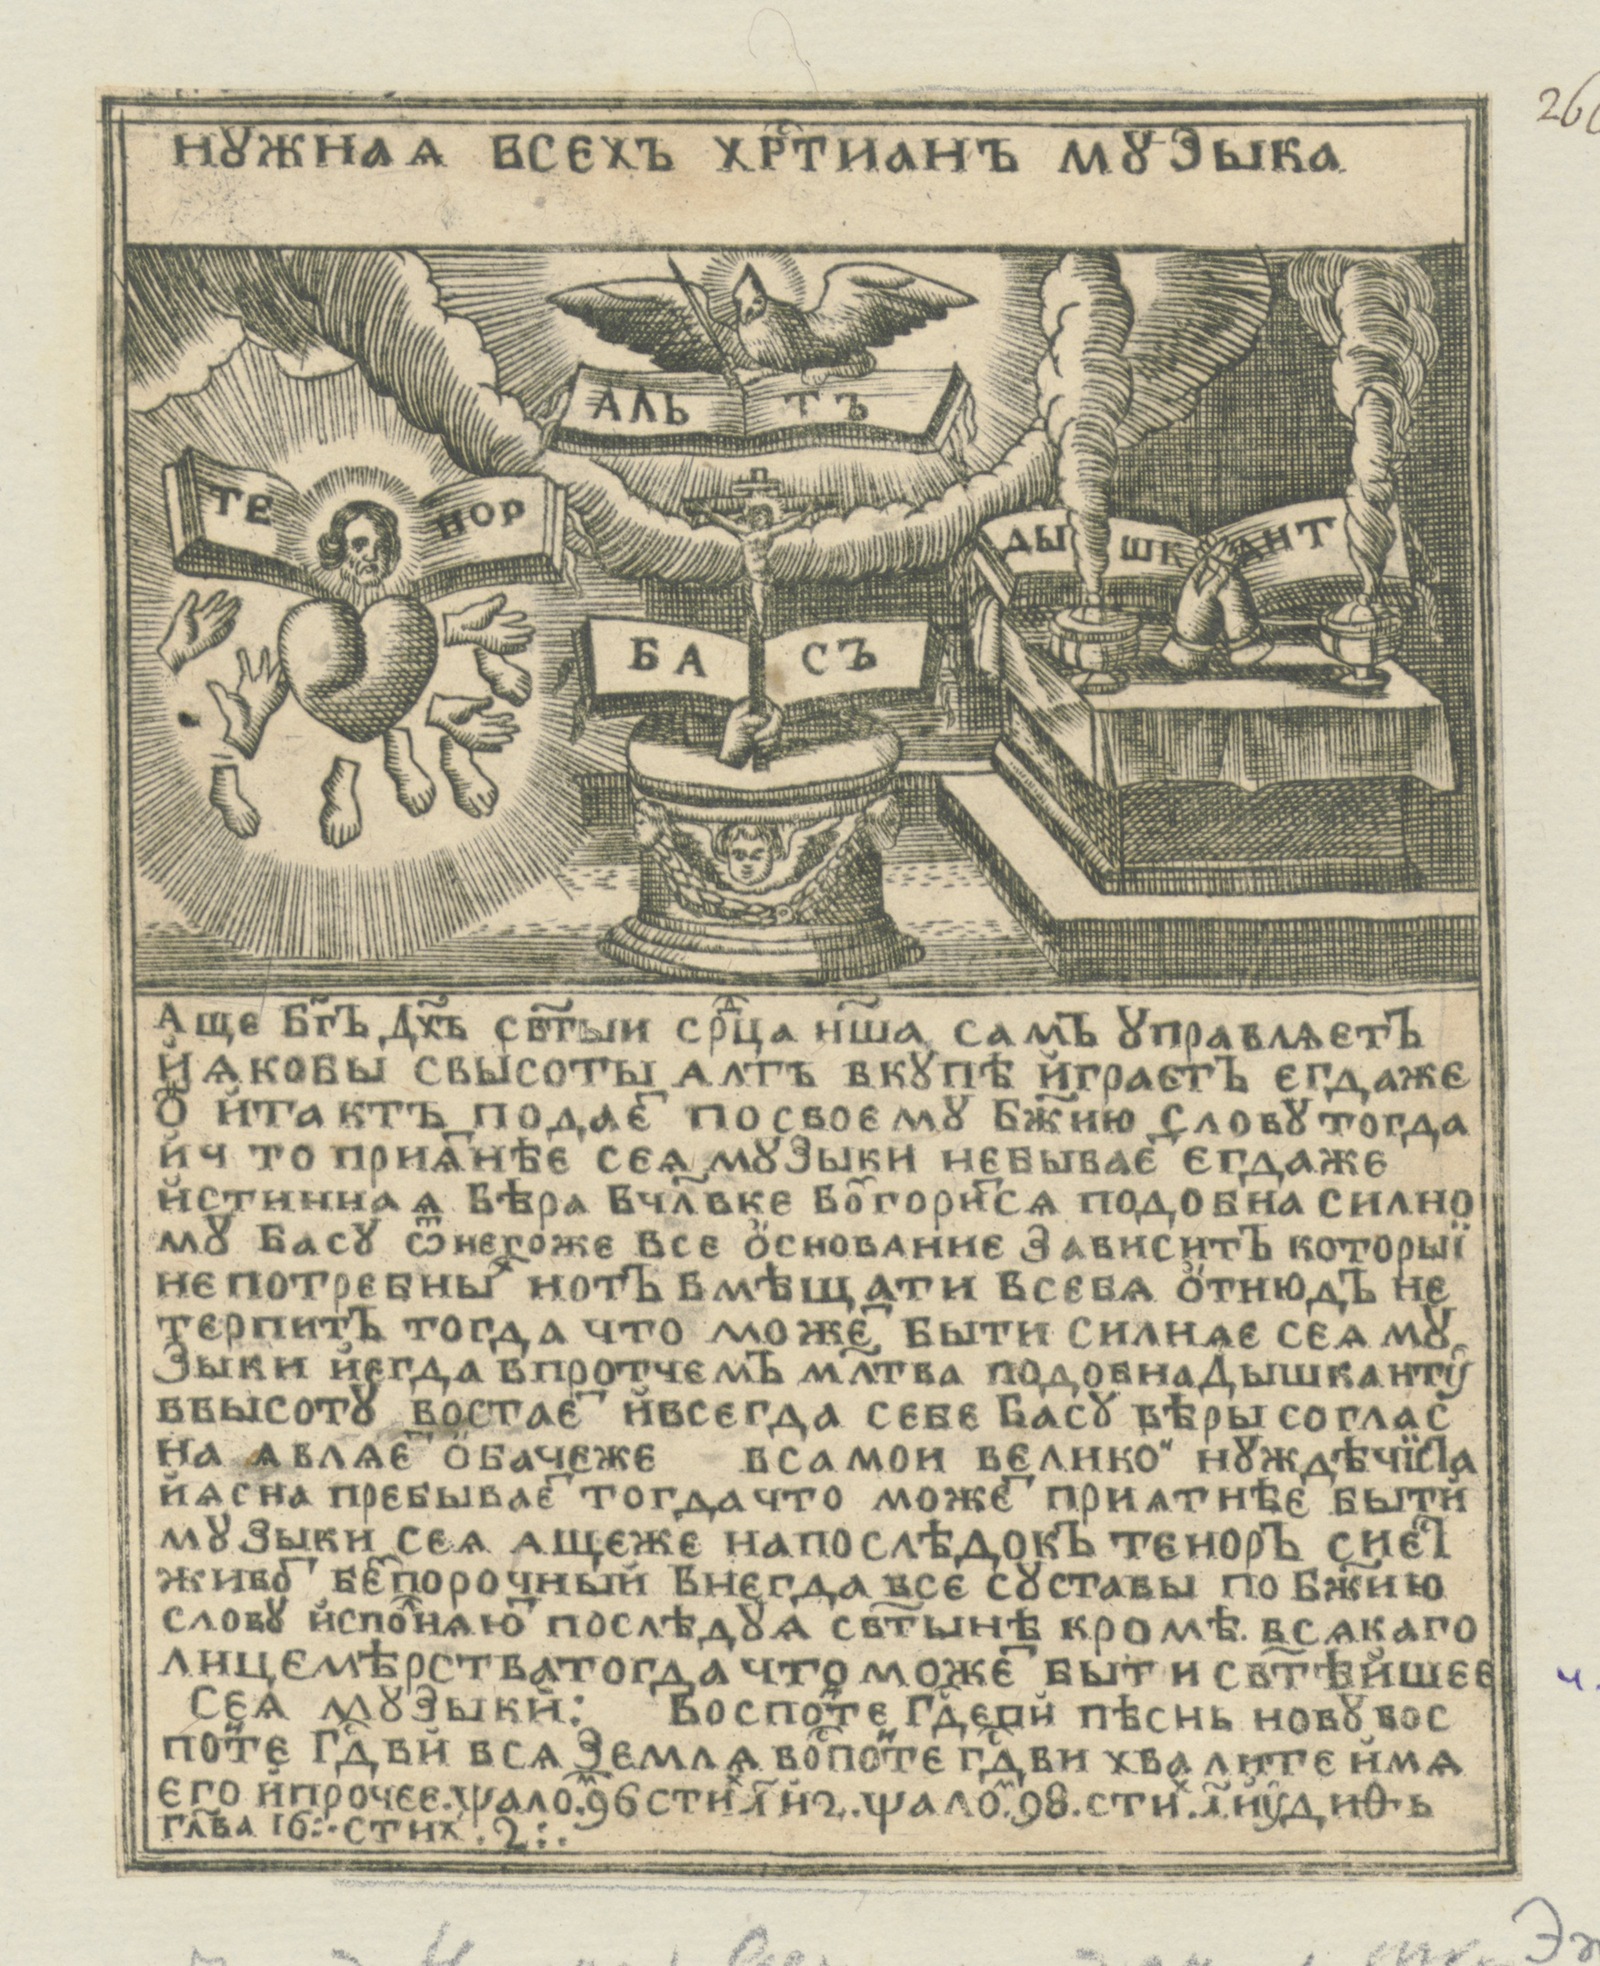 260
нꙋжнаѧ всехъ хр҇тианъ мꙋзыка
АЛЬ ТЪ
ТЕ НОР
ДЫ ШК АНТ
БА СЪ
Аще Бг҃ъ Дх҃ъ свт҃ыи ср҃дца нш҃а самъ ꙋправлѧетъ
и҆ ꙗкобы свысоты алтъ вкꙋпѣ и҆граетъ егдаже
Ѻ҆ и҆тактъ подае по своемꙋ Бж҃ию словꙋ тогда
и҆ что приѧнѣе сеѧ мꙋзыки небывае егдаже
и҆стиннаѧ вѣра вчл҃вке во҇горисѧ подобна силно
мꙋ басꙋ ѿнегоже все ѻ҆снование зависитъ которыї
не потребныⷯ нотъ вмѣщати всебѧ ѻ҆тнюдъ не
терпитъ тогда что може быти силнѧе сеѧ мꙋ
зыки и҆егда впротчемъ мл҃тва подобна Дышкантꙋ
ввысотꙋ востае и҆всегда себе басꙋ вѣры соглас
на ѧвлѧе ѻ҆бачеже всамои велико нꙋждѣ чїста
и҆ѧсна пребывае тогда что може приѧтнѣе быти
мꙋзыки сеѧ ащеже напослѣдокъ теноръ сиеї
живо бе҇порочныи внегда все сꙋставы по Бж҃ию
словꙋ и҆споⷧнѧю послѣдꙋѧ свт҃ынѣ кромѣ всѧкаго
лицемѣрства тогда что може быти свт҃ѣйшее
сеѧ мꙋзыки: Воспоⷯте Гд҇еви пѣснь новꙋ вос
поⷯте Гд҇ви всѧ Землѧ во҇поⷯте гд҇ви хвалите и҆мѧ
его и҆прочее. ѱалоⷨ. 96 стиⷯ а҃ и҆ 2. ѱалоⷨ. 98. стиⷯ. а҃ и҆ꙋдиѳь
глв҃а 16: стих. 2:.